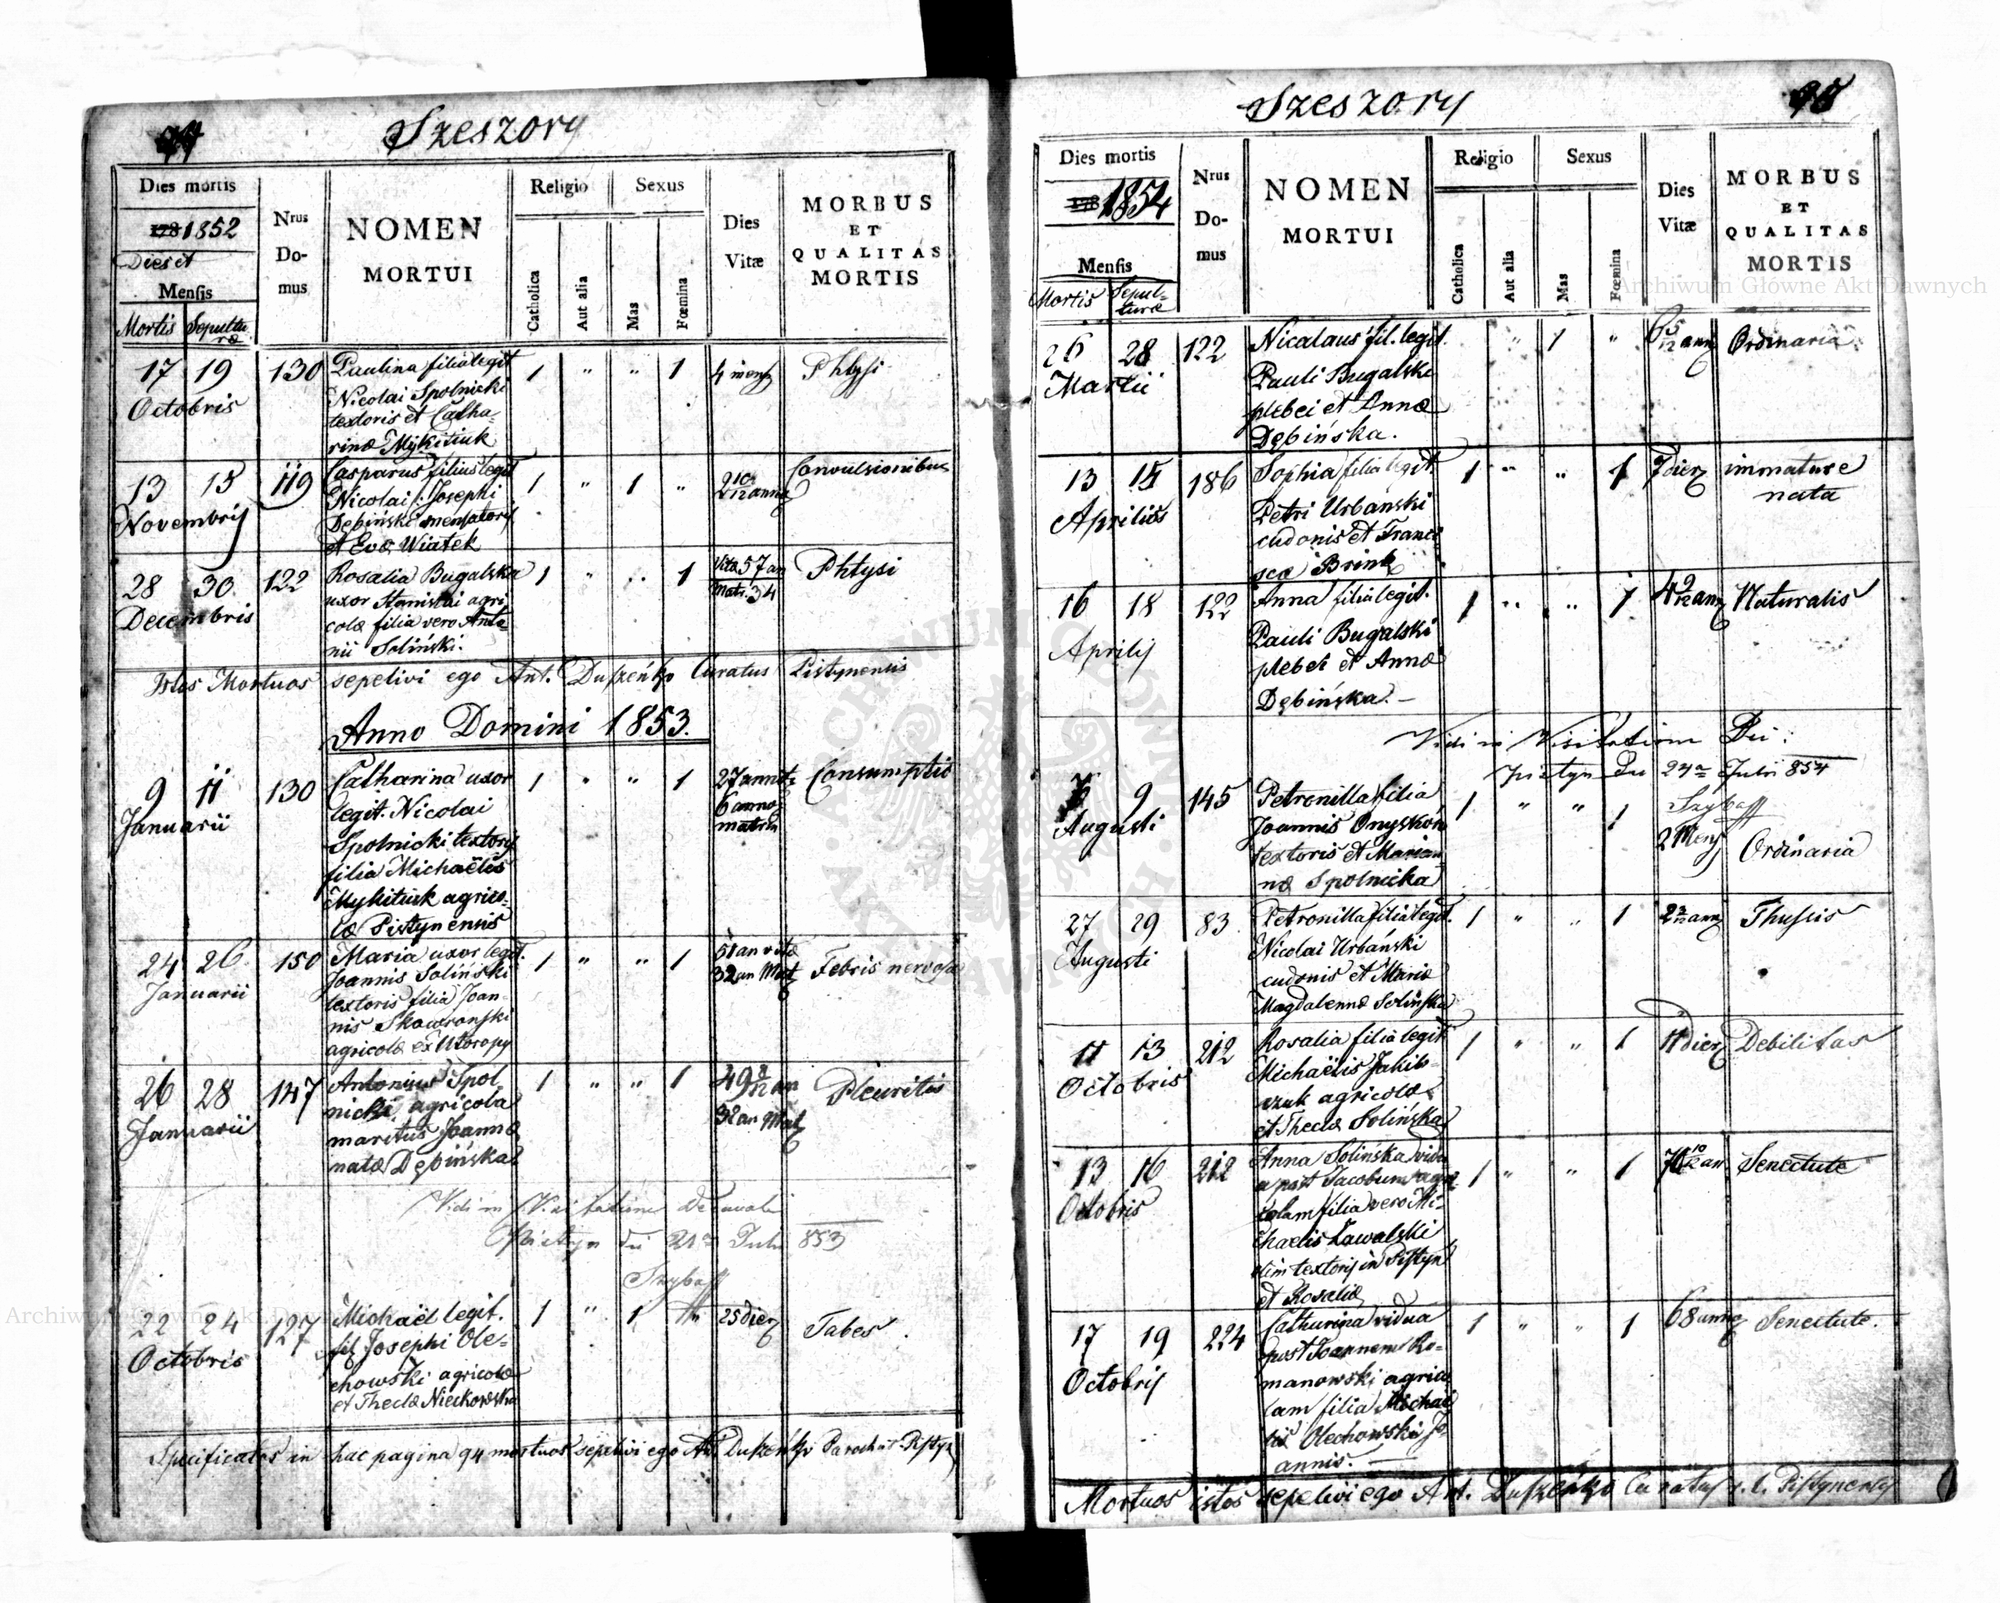 94
Szeszory
Dies mortis
178 1852
Dies et
Mensis
Mortis Sepultu
ræ
Nrus
Do-
mus
NOMEN
MORTUI
Religio
Catholica
Aut alia
Sexus
Mas
Fœmina
Dies
Vitæ
MORBUS
ET
QUALITAS
MORTIS
17 19 130 Paulina filia legit 1 " " 1 4 mens Phtysi
Octobris Nicolai Spolnicki
textoris et Catha-
rinæ Mykitiuk
13 15 119 Casparus filius legit 1 " 1 " 2 10/12 anno Convulsionibus
Novembris Nicolai Josephi
Dębiński mensatoris
et Evæ Wiatek
28 30 122 Rosalia Bugalska 1 " " 1 Vitæ 57 an Phtysi
Matr. 34
Decembris uxor Stanislai agri
colæ filia vero Anto-
nii Soliński.
Istos Mortuos sepelivi ego Ant. Duszeńko Curatus Pistynensis
Anno Domini 1853.
9 11 130 Catharina uxor 1 " " 1 27 an vitæ Consumptio
Januarii legit. Nicolai 6 anno
matrim
Spolnicki textoris
filia Michaëlis
Mykitiuk agrico-
læ Pistynensis
24 26 150 Maria uxor legit. 1 " " 1 51 an vitæ Febris nervosa
Januarii Joannis Soliński 32 an Mat
textoris filia Joan-
nis Skowronski
agricolæ ex Utoropy
26 28 147 Antonius Spol- 1 " " 1 49 an Pleuritis
Januarii nicki agricola 32 an Mat
maritus Joannæ
natæ Dębińska
Vidi in Visitatione Decanali
Pistyn die 21a Julii 853
22 24 127 Michaël legit. 1 " 1 " 25 dier Tabes.
Octobris fil Josephi Ole-
chowski agricolæ
et Theclæ Nieckowska
Specificatos in hac pagina 94 mortuos sepelivi ego Ant. Duszeńko Paroch Pistyn
95
Szeszory
Dies mortis
178 1854
Mensis
Mortis Sepul-
turæ
Nrus
Do-
mus
NOMEN
MORTUI
Religio
Catholica
Aut alia
Sexus
Mas
Fœmina
Dies
Vitæ
MORBUS
ET
QUALITAS
MORTIS
26 28 122 Nicolaus fil. legit. " 1 " 6 5/12 ann Ordinaria
Martii Pauli Bugalski
plebei et Annæ
Dębińska.
13 15 186 Sophia filia legit. 1 " " 1 7 dier immature
nata
Aprilis Petri Urbanski
cudonis et Franci
scæ Brink
16 18 122 Anna filia legit. 1 " " 1 4 9/12 ann Naturalis
Aprilis Pauli Bugalski
plebei et Annæ
Dębińska. —
Vidi in Visitatione Dei:
Pistyn die 24a Julii 854
9 145 Petronilla filia 1 " " 1 2 Mens Ordinaria
Augusti Joannis Onyskow
textoris et Marian-
næ Spolnicka
27 29 83 Petronilla filia legit. 1 " " 1 2 ann Thussis
Augusti Nicolai Urbański
cudonis et Mariæ
Magdalennæ Solińska
11 13 212 Rosalia filia legit 1 " " 1 11 dier Debilitas
Octobris Michaëlis Jakib-
czuk agricolæ
et Theclæ Solińska
13 16 212 Anna Solińska vidu 1 " " 1 an Senectute
Octobris a post Jacobum agri-
colam filia vero Mi-
chaelis Kowalski
olim textoris in Pistyn
et Rosaliæ
17 19 224 Catharina vidua 1 " " 1 68 anno Senectute.
Octobris post Joannem Ro-
manowski agrico
lam filia Michaë
lis Olechowski Jo
annis. —
Mortuos istos sepelivi ego Ant. Duszeńko Curatus r. l. Pistynensis
Archiwum Główne Akt Dawnych
Archiwum Główne Akt Dawnych
ARCHIWUM GŁÓWNE AKT DAWNYCH